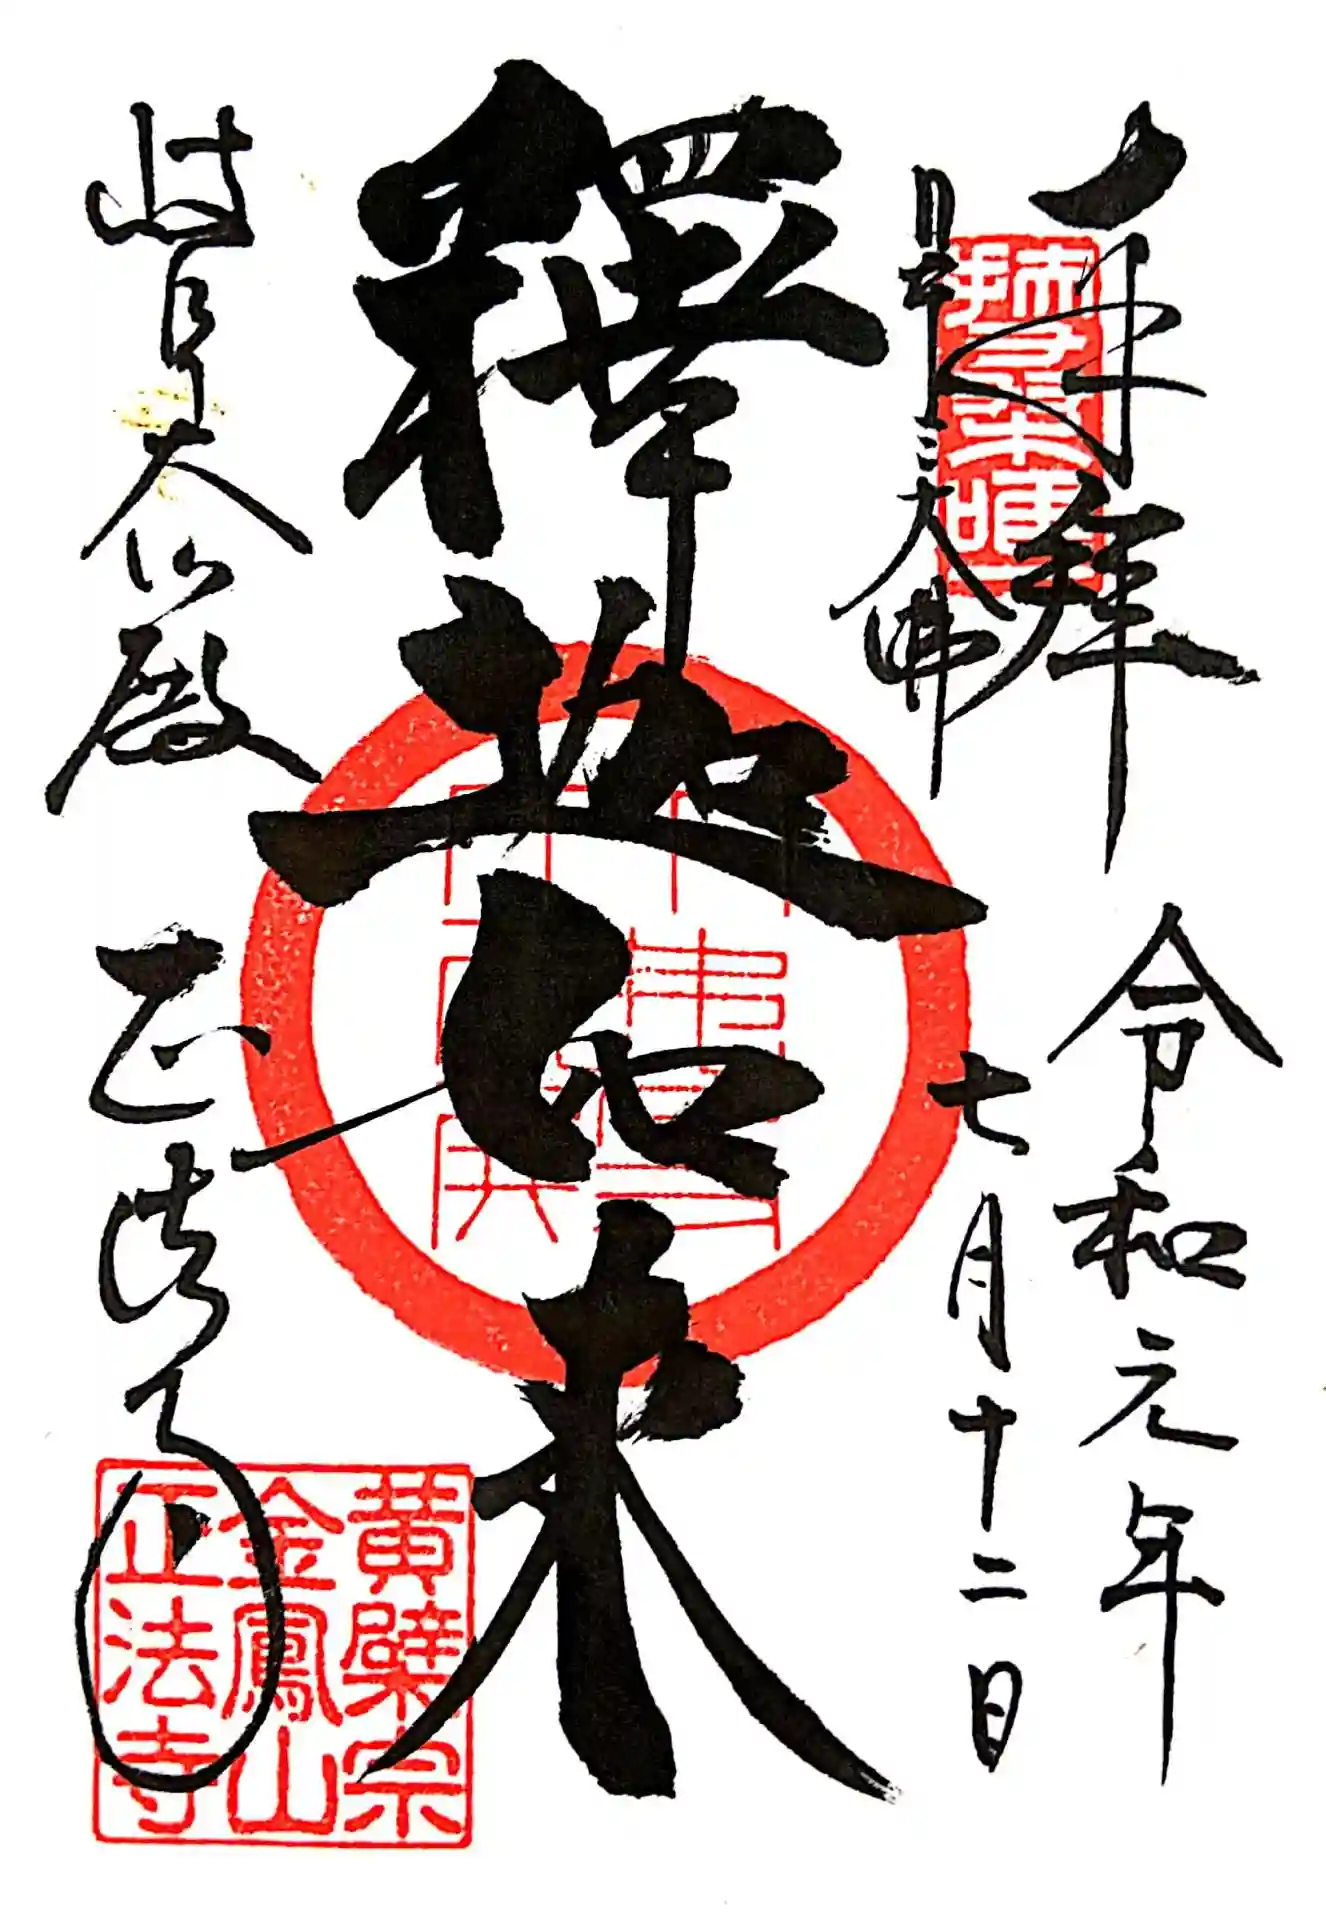 奉拝
令和元年
七月十二日
日本三大佛
釋迦如来
岐阜大仏殿
正法寺
黄檗宗
金鳳山
正法寺